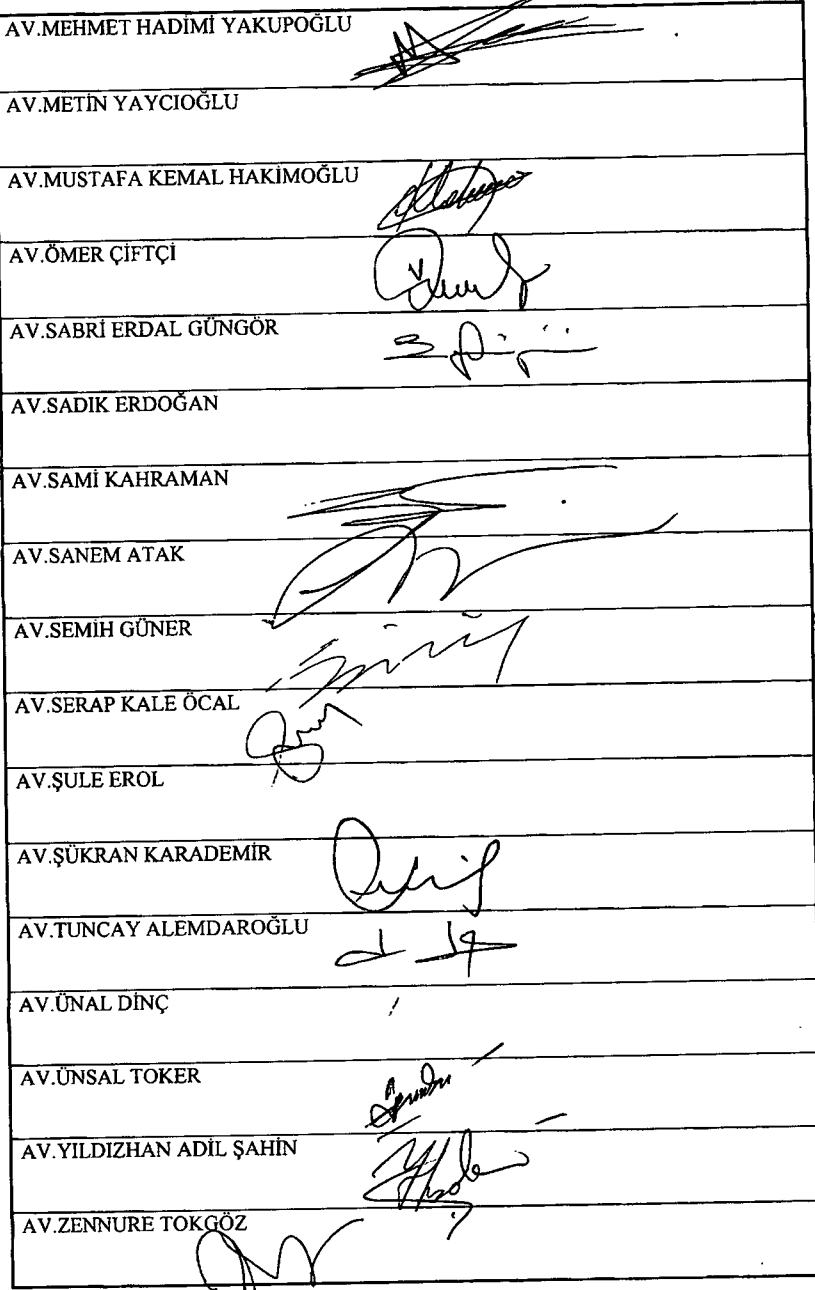 AV.MEHMET HADİMİ YAKUPOĞLU
AV.METİN YAYCIOĞLU
AV.MUSTAFA KEMAL HAKİMOĞLU
AV.ÖMER ÇİFTÇİ
AV.SABRİ ERDAL GÜNGÖR
AV.SADIK ERDOĞAN
AV.SAMİ KAHRAMAN
AV.SANEM ATAK
AV.SEMİH GÜNER
AV.SERAP KALE ÖCAL
AV.ŞULE EROL
AV.ŞÜKRAN KARADEMİR
AV.TUNCAY ALEMDAROĞLU
AV.ÜNAL DİNÇ
AV.ÜNSAL TOKER
AV.YILDIZHAN ADİL ŞAHİN
AV.ZENNURE TOKGÖZ